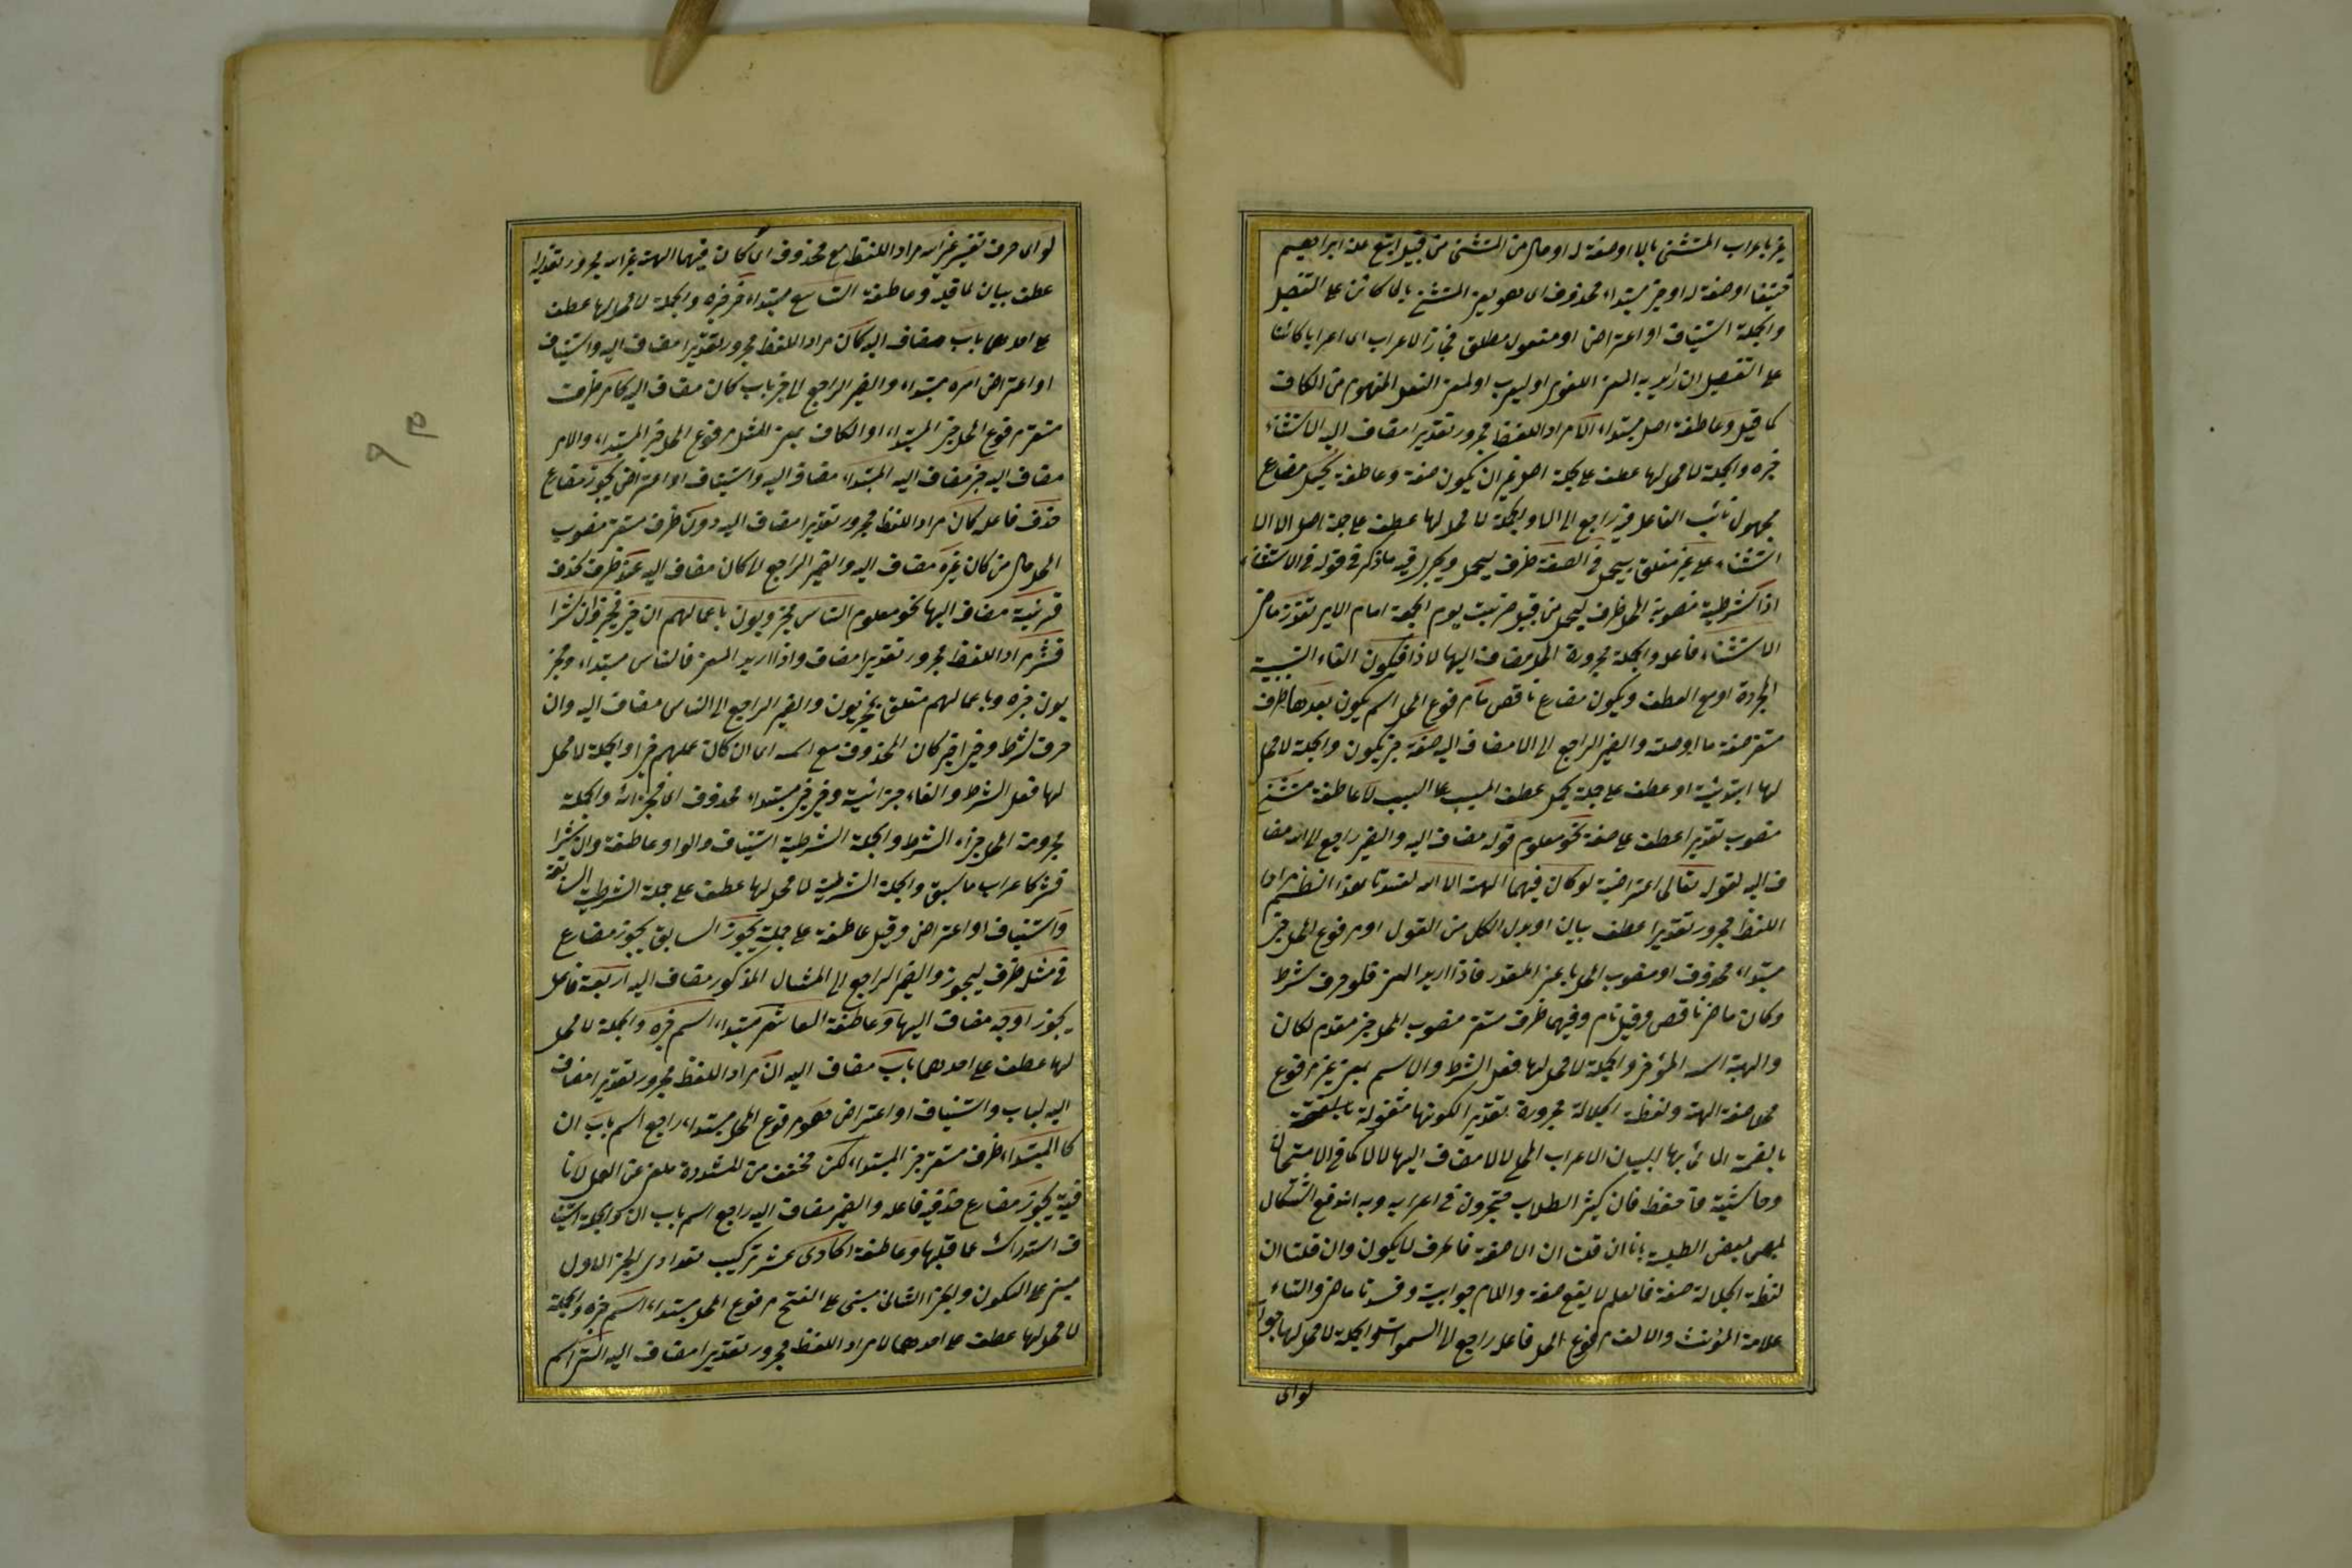 غير باعراب المستثنى بالا او صفة له او حال من المستثنى من قبيل اتبع ملة ابراهيم
حنيفا او صفة له او خبر مبتداء محذوف اى هو يعنى المستثنى بالا كائن على التفصيل
والجملة استيناف او اعتراض او مفعول مطلق مجازا لاعراب اى اعرابا كائنا
على التفصيل ان اريد به المعنى اللغوى او ليعرب او لمعنى الفعل المفهوم من الكاف
كما قيل وعاطفة اصل مبتداء الا مراد اللفظ مجرور تقديرا مضاف اليه الاستثناء
خبره والجملة لا محل لها عطف على جملة اصل غير ان يكون صفة وعاطفة يحمل مضارع
مجهول نائب الفاعل فيه راجع الى الا والجملة لا محل لها عطف على جملة اصل الا الا
استثناء على غير متعلق بيحمل فى الصفة ظرف ليحمل ويجرى فيه ما ذكر فى قوله فى الاستثناء
اذا شرطية منصوبة المحل ظرف ليحمل من قبيل ضربت يوم الجمعة امام الامير تعذر ماض
الاستثناء فاعله والجملة مجرورة المحل مضاف اليها لاذا فيكون الفاء السببية
المجردة او مع العطف ويكون مضارع ناقص ما مرفوع المحل اسم يكون بعدها ظرف
مستقر صفة ما او صلة والضمير الراجع الى الا مضاف اليه صفة خبر يكون والجملة لا محل
لها ابتدائية او عطف على جملة يحمل عطف المسبب على السبب لا عاطفة مستثنى
منصوب تقديرا عطف على صفة نحو معلوم قوله مضاف اليه والضمير راجع الى الله مضا
ف اليه لقول تعالى اعتراضية لو كان فيهما الهة الا الله لفسدتا هذا النظم مراد
اللفظ مجرور تقديرا عطف بيان او بدل الكل من القول او مرفوع المحل خبر
مبتداء محذوف او منصوب المحل باعنى المقدر فاذا اريد المعنى فلو حرف شرط
وكان ماض ناقص وقيل تام وفيهما ظرف مستقر منصوب المحل خبر مقدم لكان
والهة اسمه المؤخر والجملة لا محل لها فعل الشرط والا اسم بمعنى غير مرفوع
محلا صفة الهة ولفظة الجلالة مجرورة تقديرا لكونها مشغولة
بالضمة التى بها لبيان الاعراب المحلى لالا مضاف اليها لالا كما فى الامتحان
وحاشيته فاحفظ فان كثير الطلاب متحيرون فى اعرابه وبه اندفع اشكال
لبعض الطلبة بانا ان قلت ان الا صفة فالحرف لا يكون وان قلت ان
لفظة الجلالة صفة فالعلم لا يقع صفة واللام جوابية وفسدتا ماض والتاء
علامة المؤنث والالف مرفوع المحل فاعله راجع الى السموات والجملة لا محل لها جواب
لو اى
لو اى حرف تفسير غير الله مراد اللفظ مع محذوف اى كان فيهما الهة غير الله مجرور تقديرا
عطف بيان لما قبله وعاطفة التاسع مبتداء خبر خبره والجملة لا محل لها عطف
على احدها باب مضاف اليه كان مراد اللفظ مجرور تقديرا مضاف اليه واستيناف
او اعتراض امره مبتداء والضمير الراجع الى خبر باب كان مضاف اليه كامر ظرف
مستقر مرفوع المحل خبر المبتداء او الكاف بمعنى المثل مرفوع المحل خبر المبتداء والامر
مضاف اليه خبر مضاف اليه المبتداء مضاف اليه واستيناف او اعتراض يجوز مضارع
حذف فاعله كان مراد اللفظ مجرور تقديرا مضاف اليه دون ظرف مستقر منصوب
المحل حال من كان غيره مضاف اليه والضمير الراجع لكان مضاف اليه عند ظرف لحذف
قرينة مضاف اليها نحو معلوم الناس مجزيون باعمالهم ان خيرا فخير وان شرا
فشر مراد اللفظ مجرور تقديرا مضاف واذا اريد المعنى فالناس مبتداء ومجز
يون خبره وباعمالهم متعلق بمجزيون والضمير الراجع الى الناس مضاف اليه وان
حرف شرط وخيرا خبر كان المحذوف مع اسمه اى ان كان عملهم خيرا والجملة لا محل
لها فعل الشرط والفاء جزائية وخير خبر مبتداء محذوف اى فجزائه والجملة
مجزومة المحل جزاء الشرط والجملة الشرطية استيناف والواو عاطفة وان شرا
فشر كاعراب ما سبق والجملة الشرطية لا محل لها عطف على جملة الشرطية السابقة
واستيناف او اعتراض وقيل عاطفة على جملة يجوز السابق يجوز مضارع
فى مثل ظرف ليجوز والضمير الراجع الى المثال المذكور مضاف اليه اربعة فاعل
يجوز اوجه مضاف اليها وعاطفة العاشر مبتداء اسم خبره والجملة لا محل
لها عطف على احدها باب مضاف اليه ان مراد اللفظ مجرور تقديرا مضاف
اليه لباب واستيناف او اعتراض فهو مرفوع المحل مبتداء راجع اسم باب ان
كالمبتداء ظرف مستقر خبر المبتداء لكن مخفف من المشددة ملغى عن العمل لا نا
فية يجوز مضارع حذفه فاعله والضمير مضاف اليه راجع اسم باب ان والجملة استينا
ف استدراك عما قبلها وعاطفة الحادى عشر تركيب تعدادى الجزء الاول
مبنى على السكون والجزء الثانى مبنى على الفتح مرفوع المحل مبتداء اسم خبره والجملة
لا محل لها عطف على احدها لا مراد اللفظ مجرور تقديرا مضاف اليه التى اسم